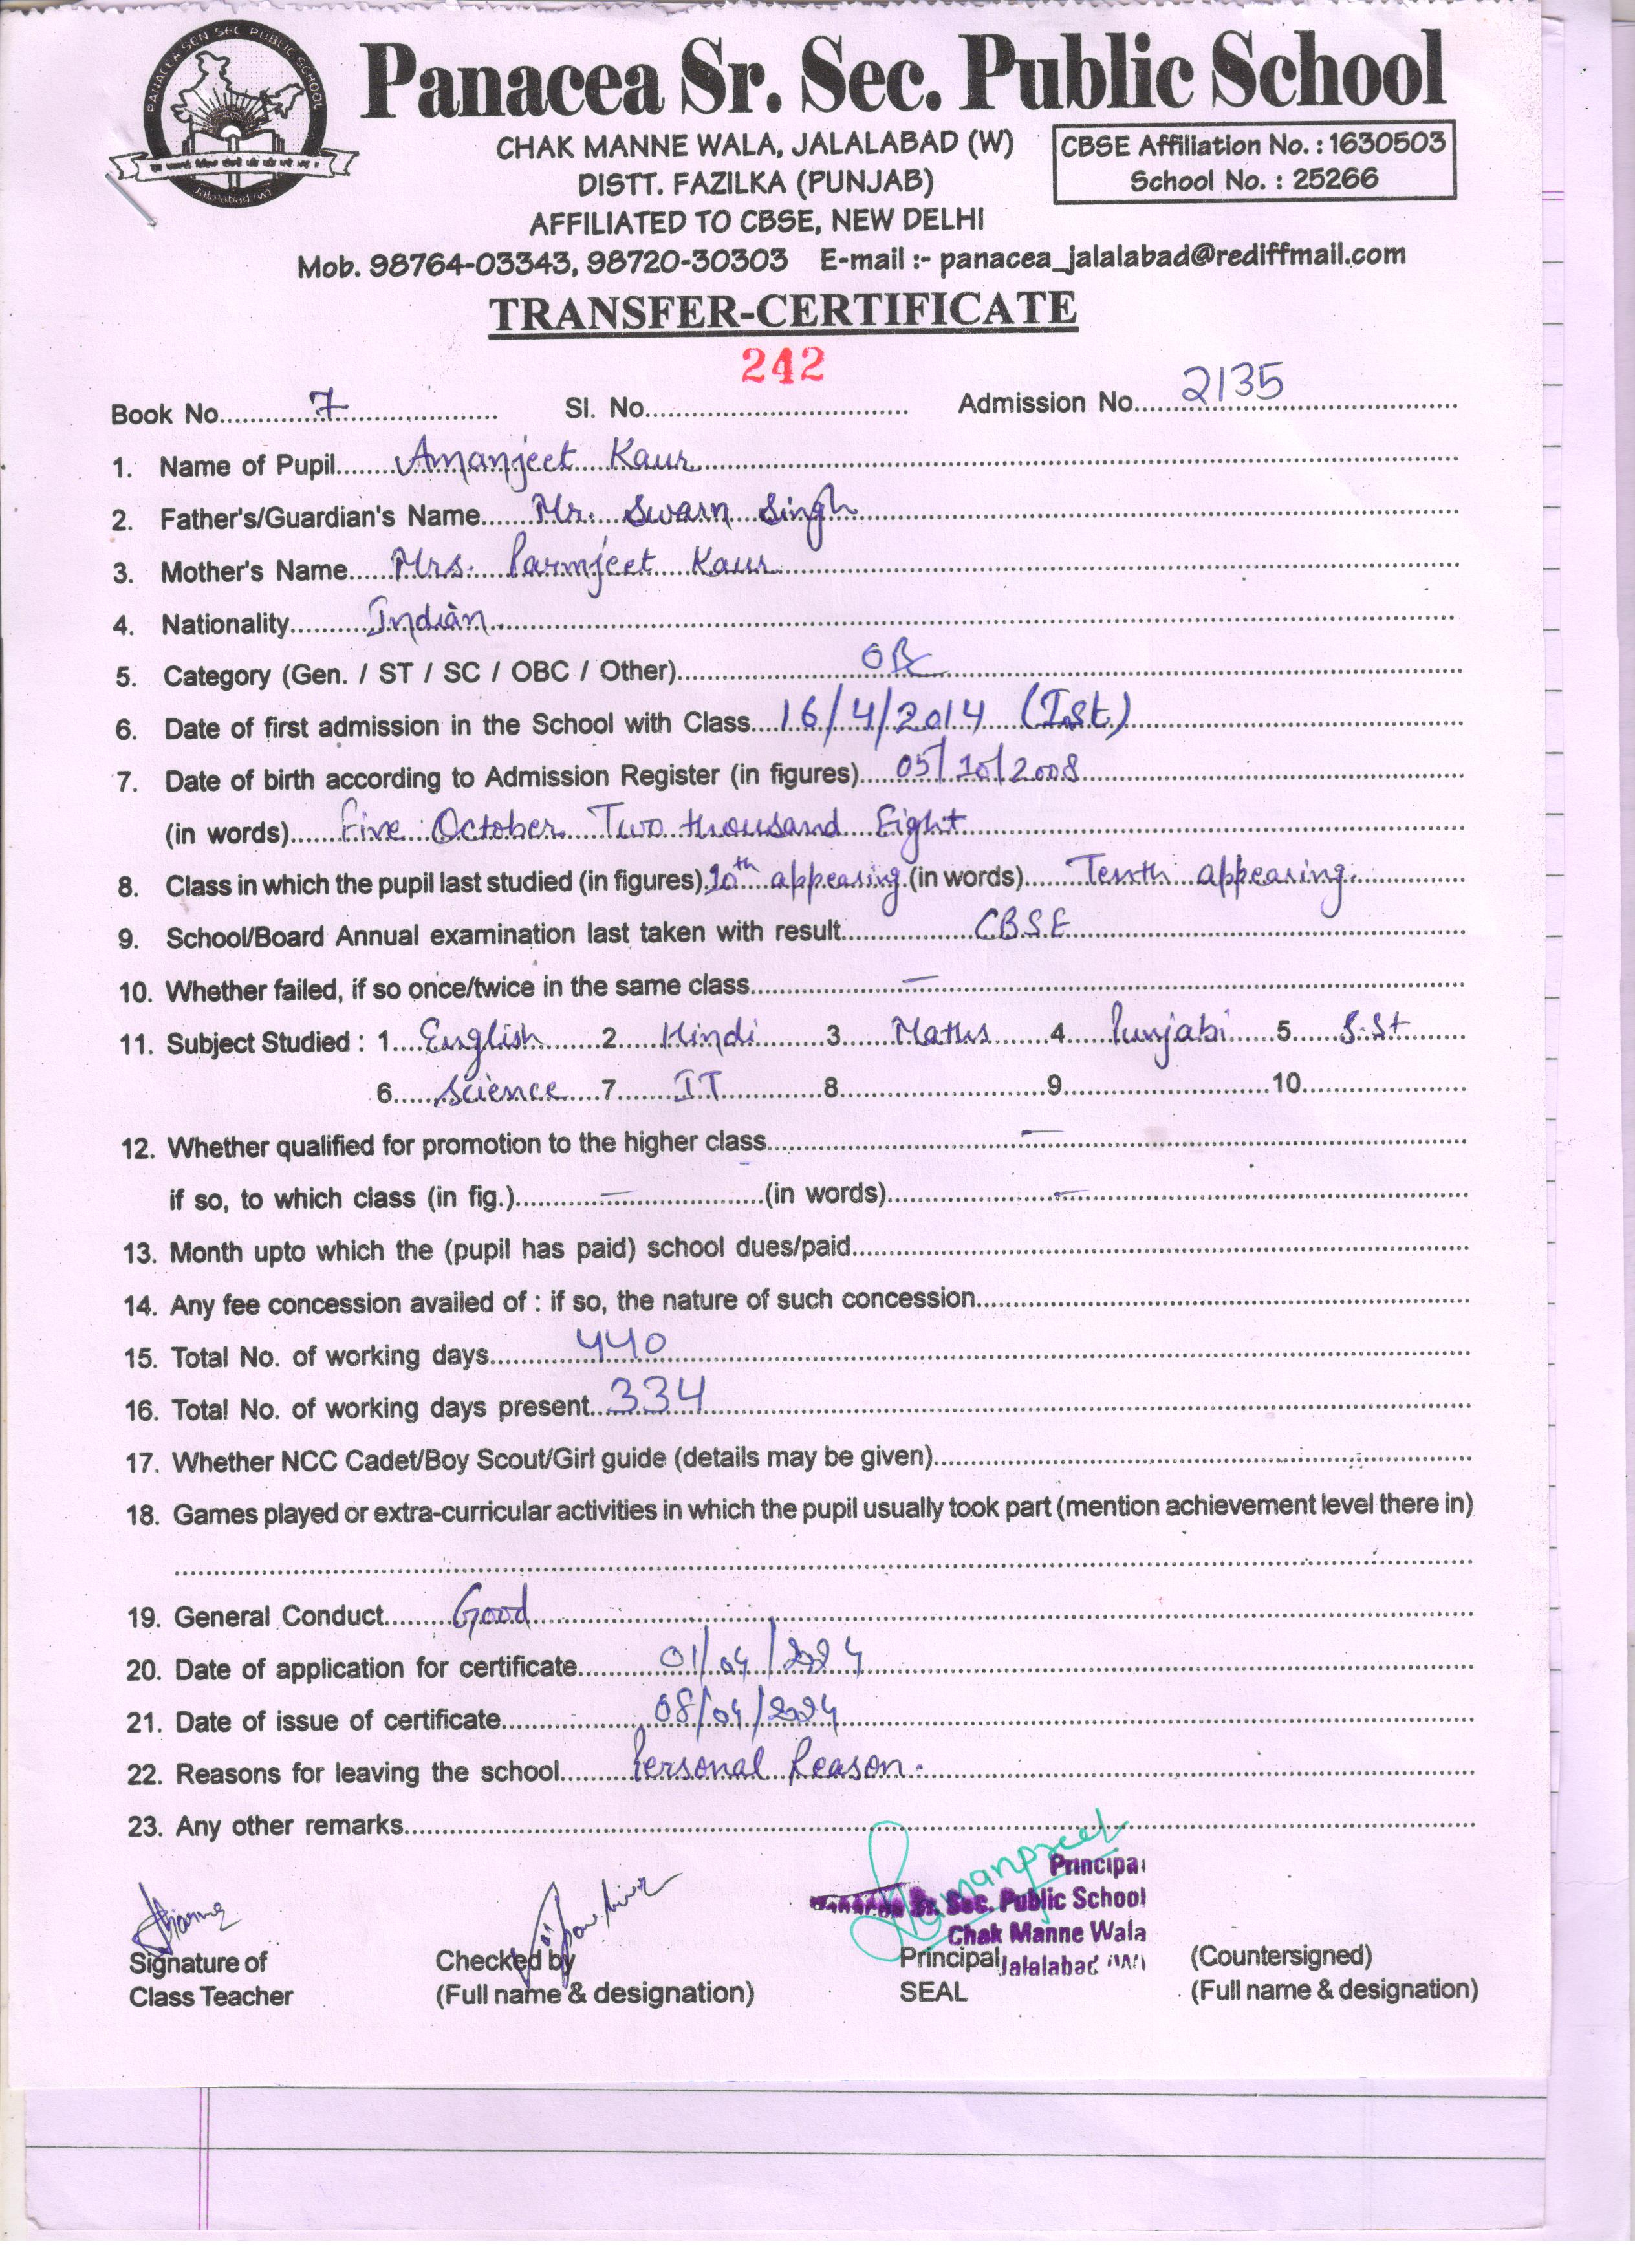 PANACEA SEN SEC PUBLIC SCHOOL
Jalalabad (w)
Panacea Sr. Sec. Public School
CHAK MANNE WALA, JALALABAD (W)
DISTT. FAZILKA (PUNJAB)
AFFILIATED TO CBSE, NEW DELHI
CBSE Affiliation No. : 1630503
School No. : 25266
Mob. 98764-03343, 98720-30303 E-mail :- panacea_jalalabad@rediffmail.com
TRANSFER-CERTIFICATE
242
Book No. 7 Sl. No. Admission No. 2135
1. Name of Pupil Amanjeet Kaur
2. Father's/Guardian's Name Mr. Swarn Singh
3. Mother's Name Mrs. Parmjeet Kaur
4. Nationality Indian
5. Category (Gen. / ST / SC / OBC / Other) OBC
6. Date of first admission in the School with Class 16/4/2014 (Ist)
7. Date of birth according to Admission Register (in figures) 05/10/2008
(in words) Five October Two thousand Eight
8. Class in which the pupil last studied (in figures) 10th appearing (in words) Tenth appearing.
9. School/Board Annual examination last taken with result CBSE
10. Whether failed, if so once/twice in the same class —
11. Subject Studied : 1 English 2 Hindi 3 Maths 4 Punjabi 5 S.St
6 Science 7 IT 8 9 10
12. Whether qualified for promotion to the higher class —
if so, to which class (in fig.) — (in words) —
13. Month upto which the (pupil has paid) school dues/paid
14. Any fee concession availed of : if so, the nature of such concession
15. Total No. of working days 440
16. Total No. of working days present 334
17. Whether NCC Cadet/Boy Scout/Girl guide (details may be given)
18. Games played or extra-curricular activities in which the pupil usually took part (mention achievement level there in)
19. General Conduct Good
20. Date of application for certificate 01/04/2024
21. Date of issue of certificate 08/04/2024
22. Reasons for leaving the school Personal Reason.
23. Any other remarks
Principal
Sr. Sec. Public School
Chak Manne Wala
Jalalabad (W)
Signature of Checked by Principal (Countersigned)
Class Teacher (Full name & designation) SEAL (Full name & designation)